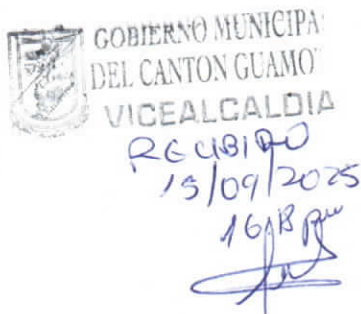 GOBIERNO MUNICIPA
DEL CANTON GUAMO
VICEALCALDIA
RECIBIDO
15/09/2025